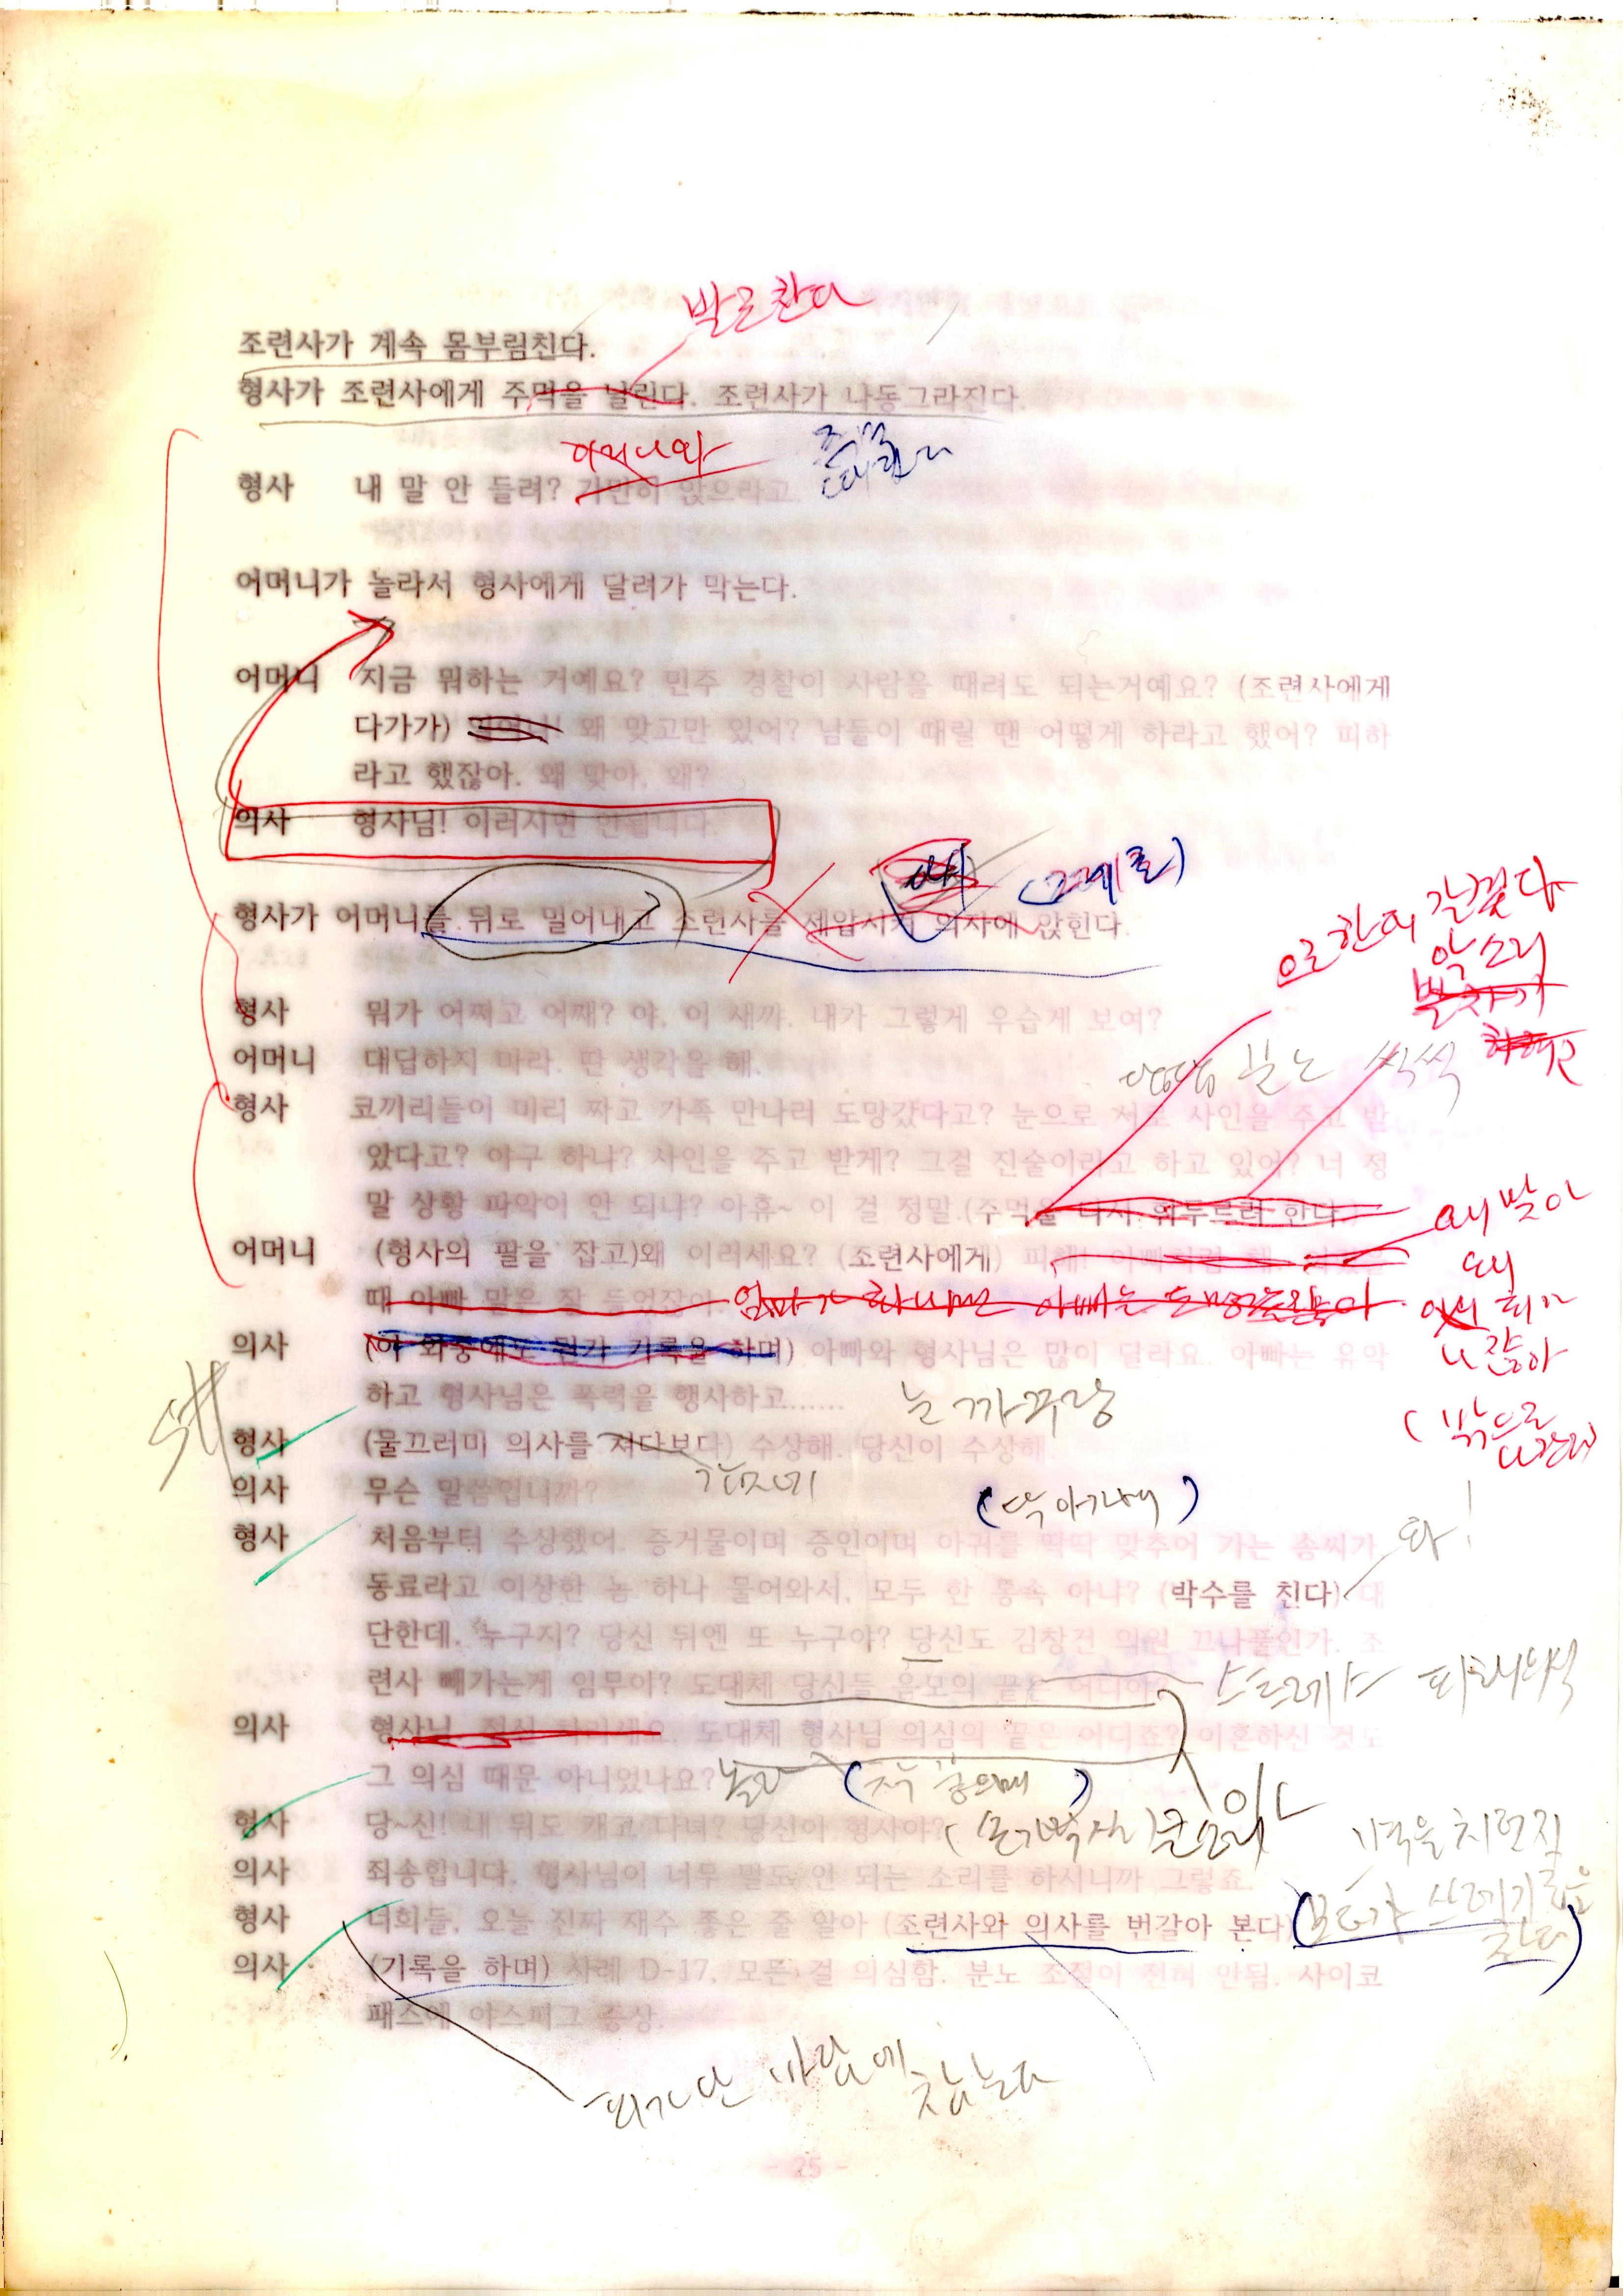 발로 찬다
조련사가 계속 몸부림친다.
형사가 조련사에게 주먹을 날린다. 조련사가 나동그라진다.
형사 내 말 안 들려? 가만히 앉으라고.
어머니가 놀라서 형사에게 달려가 막는다.
어머니 지금 뭐하는 거예요? 민주 경찰이 사람을 때려도 되는거예요? (조련사에게
다가가) 왜 맞고만 있어? 남들이 때릴 땐 어떻게 하라고 했어? 피하
라고 했잖아. 왜 맞아, 왜?
의사 형사님! 이러시면 안됩니다.
형사가 어머니를 뒤로 밀어내고 조련사를 제압시켜 의자에 앉힌다.
형사 뭐가 어쩌고 어째? 야, 이 새꺄. 내가 그렇게 우습게 보여?
어머니 대답하지 마라. 딴 생각을 해.
형사 코끼리들이 미리 짜고 가족 만나러 도망갔다고? 눈으로 서로 사인을 주고 받
았다고? 야구 하냐? 사인을 주고 받게? 그걸 진술이라고 하고 있어? 너 정
말 상황 파악이 안 되냐? 아휴~ 이 걸 정말.(주먹을
어머니 (형사의 팔을 잡고)왜 이러세요? (조련사에게) 피해! 아빠처럼 해.
때 아빠 말은 잘 들었잖아. 엄마가 화나면 아빠는
왜 맞아
의사 (이 와중에도 뭔가 기록을 하며) 아빠와 형사님은 많이 달라요. 아빠는 유약
하고 형사님은 폭력을 행사하고......
눈 까꾸랑
(밖으로
형사 (물끄러미 의사를 쳐다보다) 수상해. 당신이 수상해.
의사 무슨 말씀입니까?
형사 처음부터 수상했어. 증거물이며 증인이며 아귀를 딱딱 맞추어 가는 솜씨가.
동료라고 이상한 놈 하나 물어와서. 모두 한 통속 아냐? (박수를 친다) 대
단한데. 누구지? 당신 뒤엔 또 누구야? 당신도 김창건 의원 끄나풀인가. 조
련사 빼가는게 임무야? 도대체 당신들 음모의 끝은 어디야?
스트레스 피해의식
의사 형사님. 정신 차리세요. 도대체 형사님 의심의 끝은 어디죠? 이혼하신 것도
그 의심 때문 아니었나요?
형사 당~신! 내 뒤도 캐고 다녀? 당신이 형사야?
의사 죄송합니다. 형사님이 너무 말도 안 되는 소리를 하시니까 그렇죠.
형사 너희들, 오늘 진짜 재수 좋은 줄 알아 (조련사와 의사를 번갈아 본다)
의사 (기록을 하며) 사례 D-17, 모든 걸 의심함. 분노 조절이 전혀 안됨. 사이코
패스에 아스퍼그 증상.
- 25 -